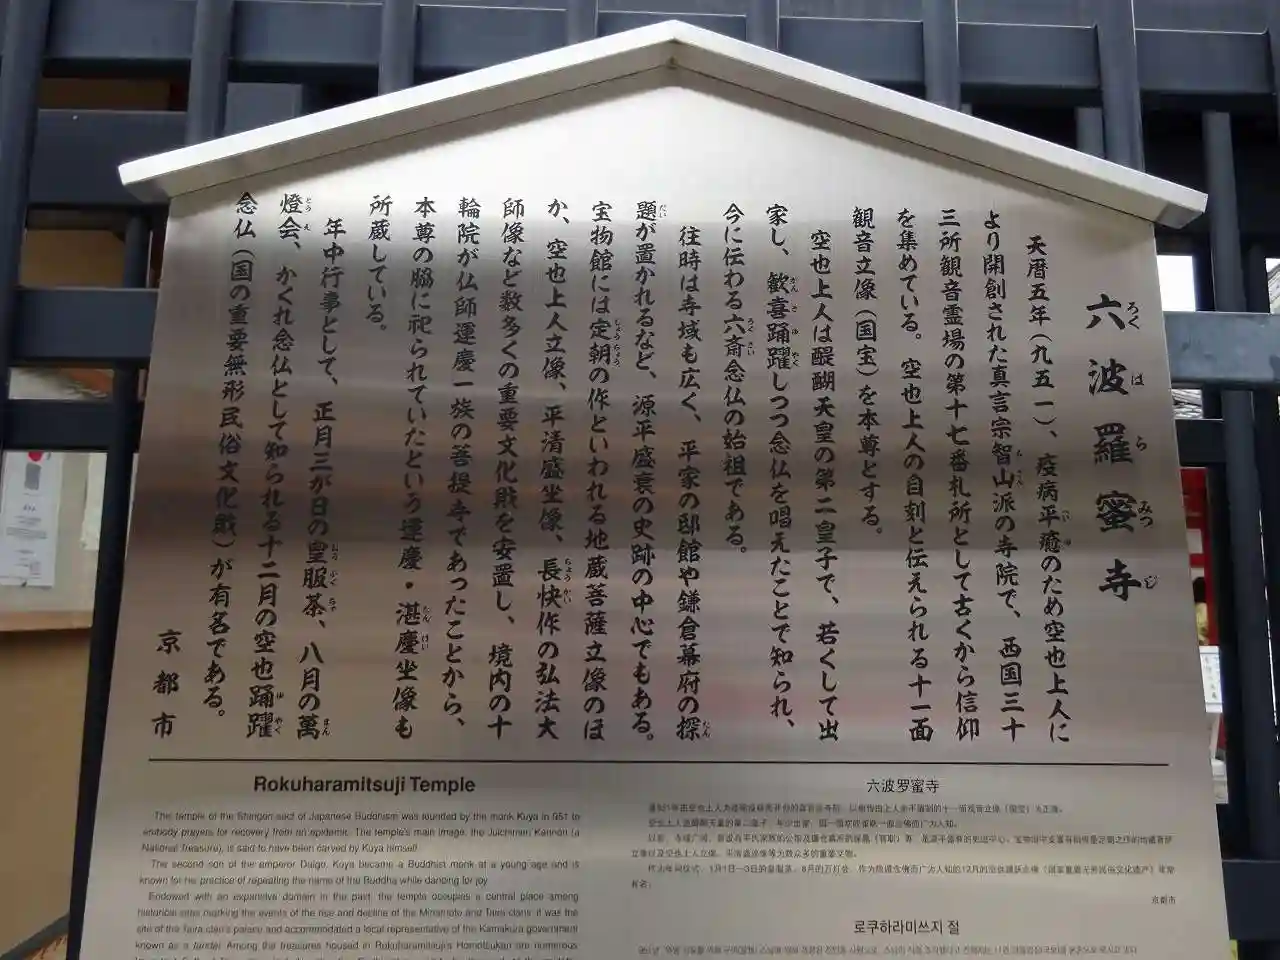 六波羅蜜寺
天暦五年(九五一)、疫病平癒のため空也上人に
より開創された真言宗智山派の寺院で、西国三十
三所観音霊場の第十七番札所として古くから信仰
を集めている。空也上人の自刻と伝えられる十一面
観音立像(国宝)を本尊とする。
空也上人は醍醐天皇の第二皇子で、若くして出
家し、歓喜踊躍しつつ念仏を唱えたことで知られ、
今に伝わる六斎念仏の始祖である。
往時は寺域も広く、平家の邸館や鎌倉幕府の探
題が置かれるなど、源平盛衰の史跡の中心でもある。
宝物館には定朝の作といわれる地蔵菩薩立像のほ
か、空也上人立像、平清盛坐像、長快作の弘法大
師像など数多くの重要文化財を安置し、境内の十
輪院が仏師運慶一族の菩提寺であったことから、
本尊の脇に祀られていたという運慶・湛慶坐像も
所蔵している。
年中行事として、正月三が日の皇服茶、八月の萬
燈会、かくれ念仏として知られる十二月の空也踊躍
念仏(国の重要無形民俗文化財)が有名である。
京都市
Rokuharamitsuji Temple
The temple of the Shingon sect of Japanese Buddhism was founded by the monk Kuya in 951 to
embody prayers for recovery from an epidemic. The temple's main image, the Juichimen Kannon (a
National Treasure), is said to have been carved by Kuya himself.
The second son of the emperor Daigo, Kuya became a Buddhist monk at a young age and is
known for his practice of repeating the name of the Buddha while dancing for joy.
Endowed with an expansive domain in the past, the temple occupies a central place among
historical sites marking the events of the rise and decline of the Minamoto and Taira clans: it was the
site of the Taira clan's palace and accommodated a local representative of the Kamakura government
known as a tandai. Among the treasures housed in Rokuharamitsuji's Homotsukan are numerous
六波罗蜜寺
京都市
로쿠하라미쓰지 절